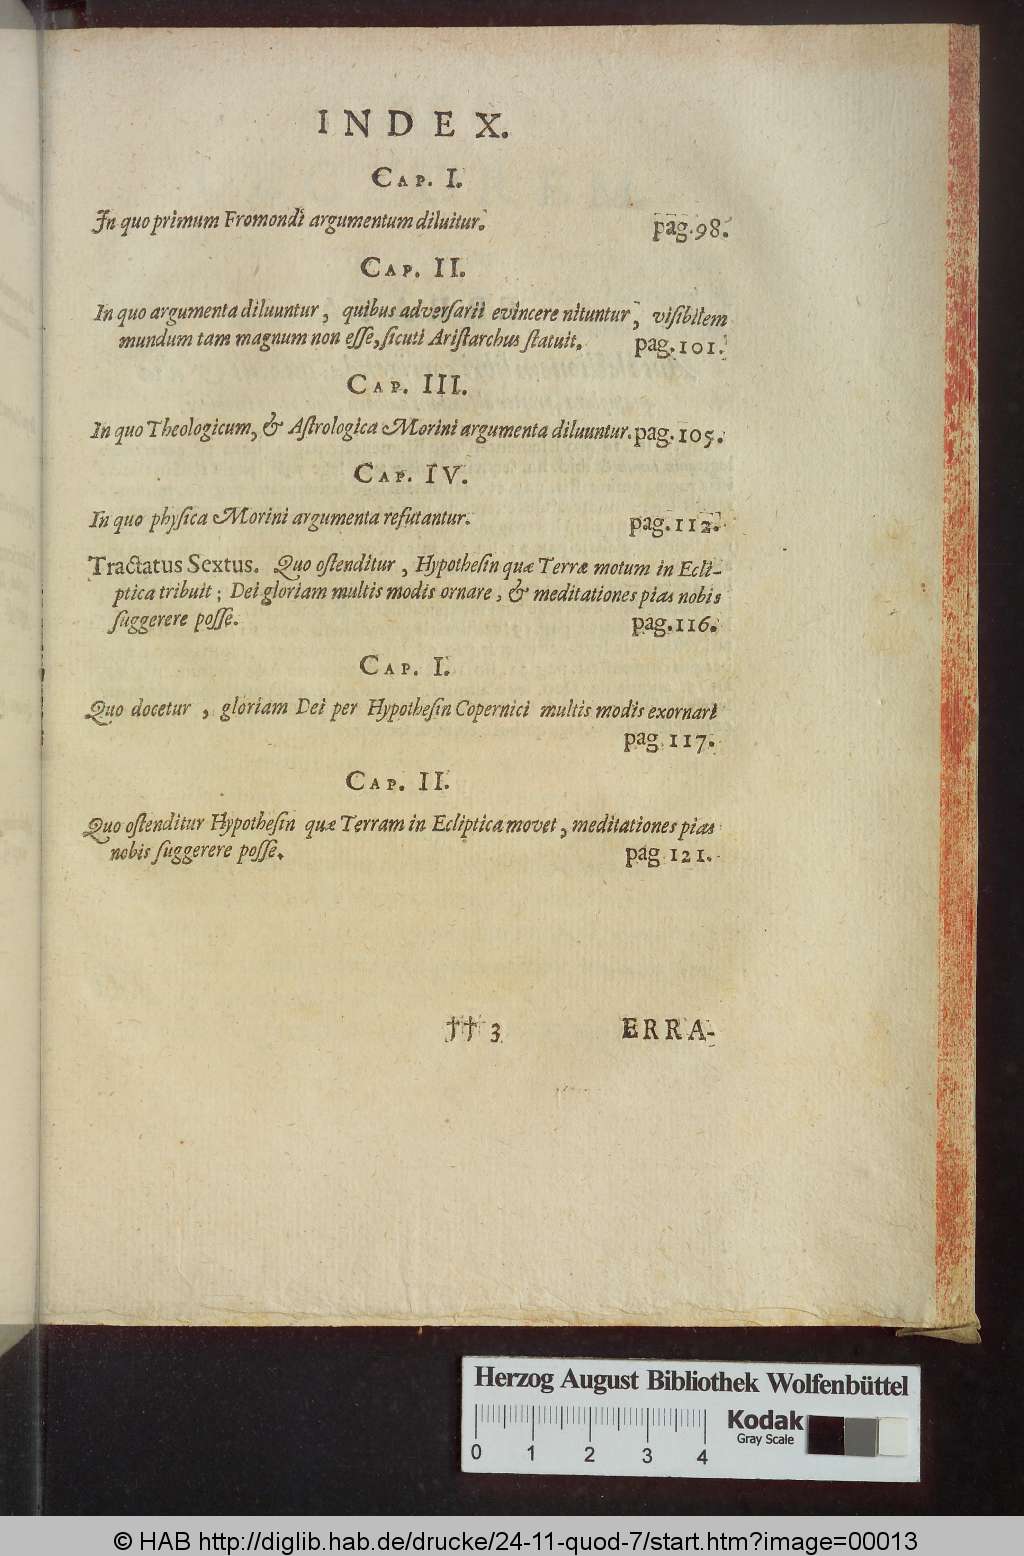 INDEX.
CAP. I.
In quo primum Fromondi argumentum diluitur. pag. 98.
CAP. II.
In quo argumenta diluuntur, quibus adverſarii evincere nituntur, viſibilem
mundum tam magnum non eſſe, ſicuti Ariſtarchus ſtatuit. pag. 101.
CAP. III.
In quo Theologicum, & Aſtrologica Morini argumenta diluuntur. pag. 105.
CAP. IV.
In quo phyſica Morini argumenta refutantur. pag. 112.
Tractatus Sextus. Quo oſtenditur, Hypotheſin quæ Terræ motum in Ecli-
ptica tribuit; Dei gloriam multis modis ornare, & meditationes pias nobis
ſuggerere poſſe. pag. 116.
CAP. I.
Quo docetur, gloriam Dei per Hypotheſin Copernici multis modis exornari
pag 117.
CAP. II.
Quo oſtenditur Hypotheſin quæ Terram in Ecliptica movet, meditationes pias
nobis ſuggerere poſſe. pag 121.
†† 3 ERRA-
Herzog August Bibliothek Wolfenbüttel
Kodak
Gray Scale
0 1 2 3 4
© HAB http://diglib.hab.de/drucke/24-11-quod-7/start.htm?image=00013